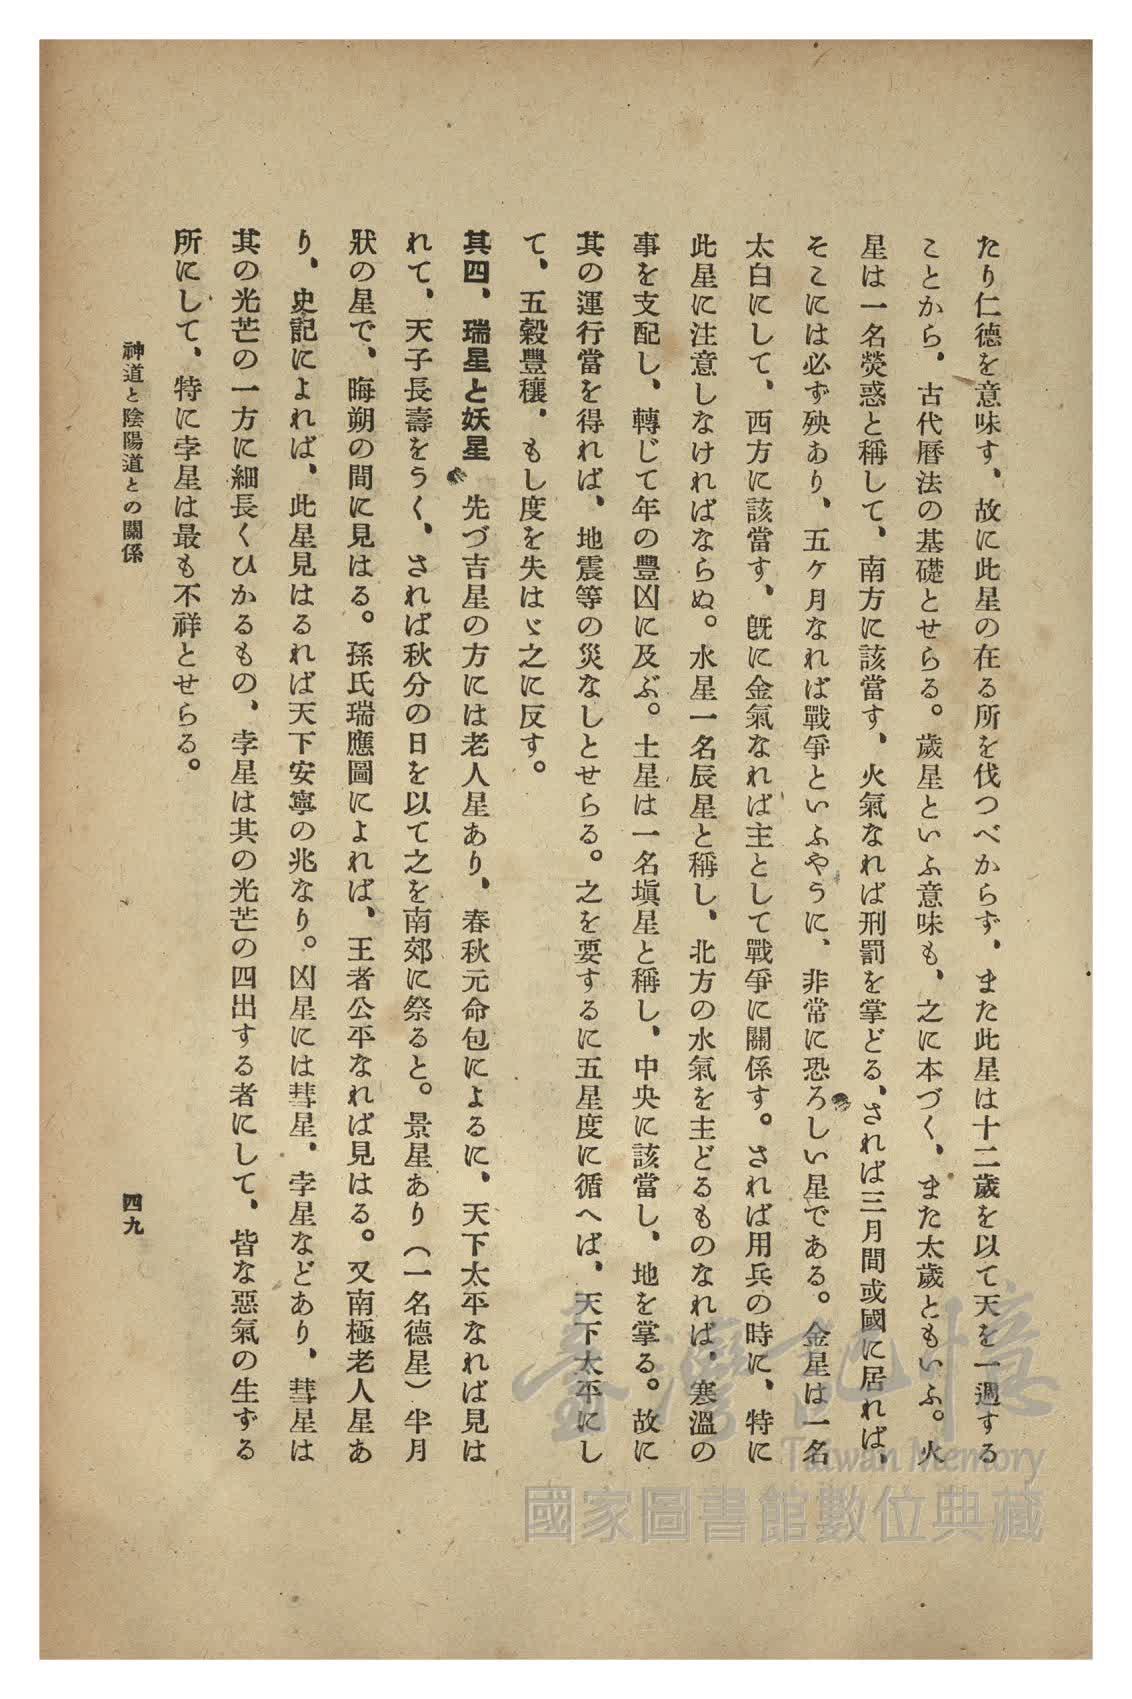 たり仁德を意味す、故に此星の在る所を伐つべからず、また此星は十二歲を以て天を一週する
ことから、古代曆法の基礎とせらる。歲星といふ意味も、之に本づく、また太歲ともいふ。火
星は一名熒惑と稱して、南方に該當す、火氣なれば刑罰を掌どる、されば三月間或國に居れば、
そこには必ず殃あり、五ケ月なれば戰爭といふやうに、非常に恐ろしい星である。金星は一名
太白にして、西方に該當す、旣に金氣なれば主として戰爭に關係す。されば用兵の時に、特に
此星に注意しなければならぬ。水星一名辰星と稱し、北方の水氣を主どるものなれば、寒溫の
事を支配し、轉じて年の豐凶に及ぶ。土星は一名塡星と稱し、中央に該當し、地を掌る。故に
其の運行當を得れば、地震等の災なしとせらる。之を要するに五星度に循へば、天下太平にし
て、五穀豐穰、もし度を失はゞ之に反す。
其四、瑞星と妖星 先づ吉星の方には老人星あり、春秋元命包によるに、天下太平なれば見は
れて、天子長壽をうく、されば秋分の日を以て之を南郊に祭ると。景星あり（一名德星）半月
狀の星で、晦朔の間に見はる。孫氏瑞應圖によれば、王者公平なれば見はる。又南極老人星あ
り、史記によれば、此星見はるれば天下安寧の兆なり。凶星には彗星、孛星などあり、彗星は
其の光芒の一方に細長くひかるもの、孛星は其の光芒の四出する者にして、皆な惡氣の生ずる
所にして、特に孛星は最も不祥とせらる。
神道と陰陽道との關係
四九
臺灣記憶
Taiwan Memory
國家圖書館數位典藏